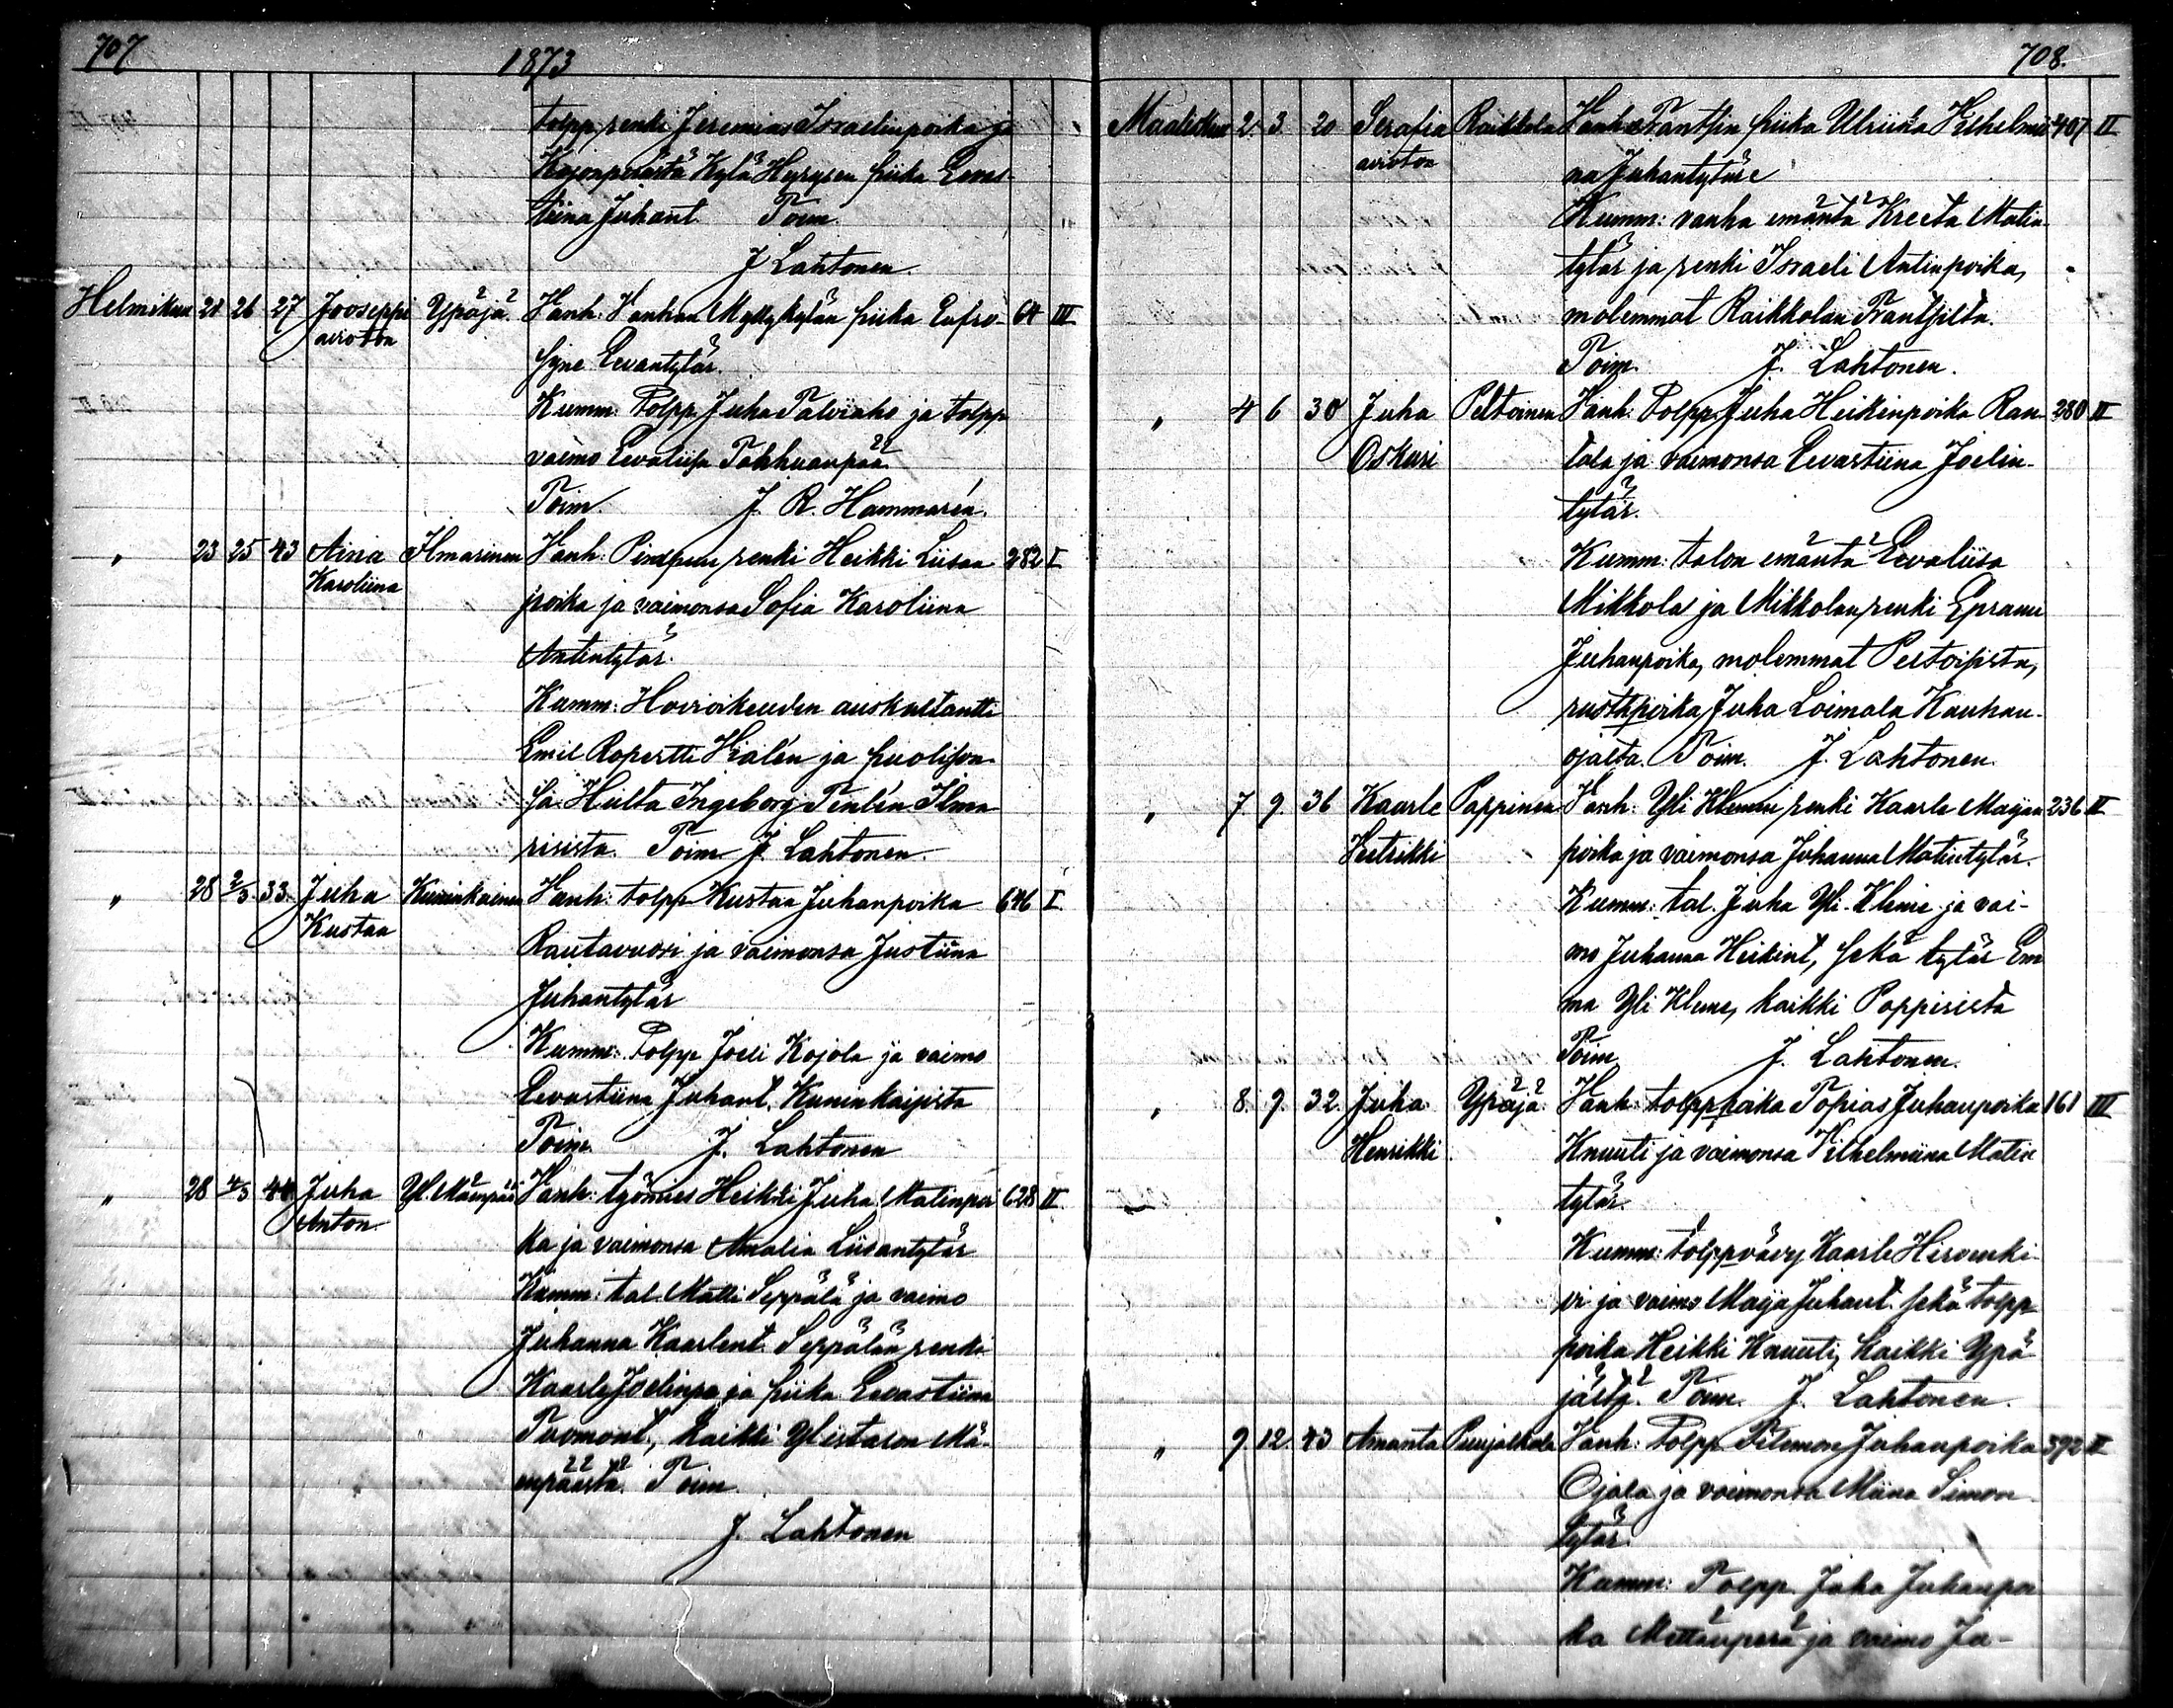 707
1873
tolpp. renki Jeremias Israelinpoika ja
Kojonperästä Kylä Hyrysen piika Eevas-
tiina Juhant. Toim.
J Lahtonen.
Helmikuu 21 26 27 Jooseppi Ypäjä. Vanh: Vanhan Myllykylän piika Eufro- 64 III
avioton
syne Eevantytär.
Kumm: Tolpp. Juha Palviaho ja tolpp
vaimo Eevaliisa Takkuanpää.
Toim. J. R. Hammarén.
" 23 25 43 Aina Ilmarinen Vanh: renki Heikki Liisan 282 I
Karoliina
poika ja vaimonsa Sofia Karoliina
Antintytär.
Kumm: Hovioikeuden auskultantti
Emil Ropertti ja puolison-
sa Hilta Ingeborg Ilma
risista. Toim J. Lahtonen.
" 28 2/3 33. Juha Kuninkainen Vanh: tolpp Kustaa Juhanpoika 646 I
Kustaa
Rautavuori ja vaimonsa Justiina
Juhantytär
Kumm: Tolpp Joeli Kojola ja vaimo
Eevastiina Juhant. Kuninkaisista
Toim. J. Lahtonen
" 28 4/3 44 Juha Yl. Mäenpää Vanh: työmies Heikki Juha Matinpoi 628 II
Anton.
ka ja vaimonsa Amalia Liisantytär
Kumm: tal. Matti Seppälä ja vaimo
Juhanna Kaarlent. Seppälän renki
Kaarle Joelinpo. ja piika Eevastiina
Tuomont., kaikki Ylistalon Mä-
enpäästä. Toim.
J. Lahtonen
708.
Maaliskuu 2. 3. 20 Serafia Raikkola Vanh: Frantsin piika Ulriika Vilhelmi- 407 II
avioton
na Juhantytär
Kumm: vanha emäntä Kreeta Matin
tytär ja renki Israeli Antinpoika,
molemmat Raikkolan Frantsilta.
Toim. J. Lahtonen.
" 4 6 30 Juha Peltoinen Vanh: Tolpp. Juha Heikinpoika Ran- 280 II
Oskari
tala ja vaimonsa Eevastiina Joelin-
tytär.
Kumm: talon emäntä Eevaliisa
Mikkola ja Mikkolan renki Epramu
Juhanpoika, molemmat Peltoisista,
rusthpoika Juha Loimala Kauhan-
ojalta. Toim. J. Lahtonen.
" 7. 9. 36 Kaarle Pappinen Vanh: Yli Klemi renki Kaarle Maijan 236 II
Vertrikki
poika ja vaimonsa Johanna Matintytär.
Kumm: tal. Juha Yli-Kleme ja vai-
mo Juhanna Heikint, sekä tytär Em
ma Yli Kleme, kaikki Pappisista
Toim J. Lahtonen.
" 8. 9. 32 Juha Ypäjä. Vanh: tolpppoika Topias Juhanpoika 161 III
Henrikki.
Knuuti ja vaimonsa Vilhelmiina Matin
tytär.
Kumm: tolppvävy Kaarle Hirvenki-
vi ja vaimo Maija Juhant. sekä tolpp
poika Heikki Knuuti, kaikki Ypä
jästä. Toim. J. Lahtonen.
" 9. 12. 43 Amanta Puujalkala Vanh: Tolpp. Filemon Juhanpoika 392 II
Ojala ja vaimonsa Miina Simon
tytär.
Kumm: Tolpp. Juha Juhanpoi
ka Mettänperä ja vaimo Ju-